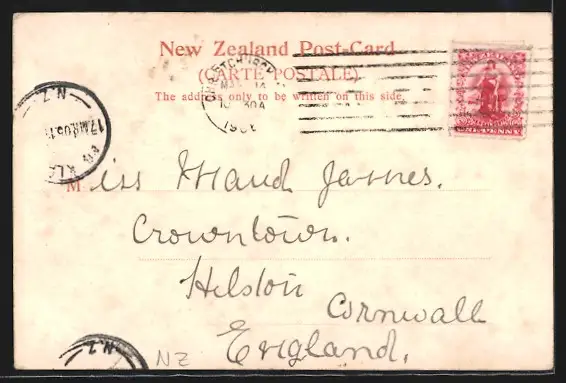 New Zealand Post-Card
(CARTE POSTALE)
The address only to be written on this side.
CHRISTCHURCH
MAR 14
10 30A
N.Z.
17 MR 06
Miss Maud James.
Crowntown.
Helston
Cornwall
England.
N.Z.
NZ
ONE PENNY